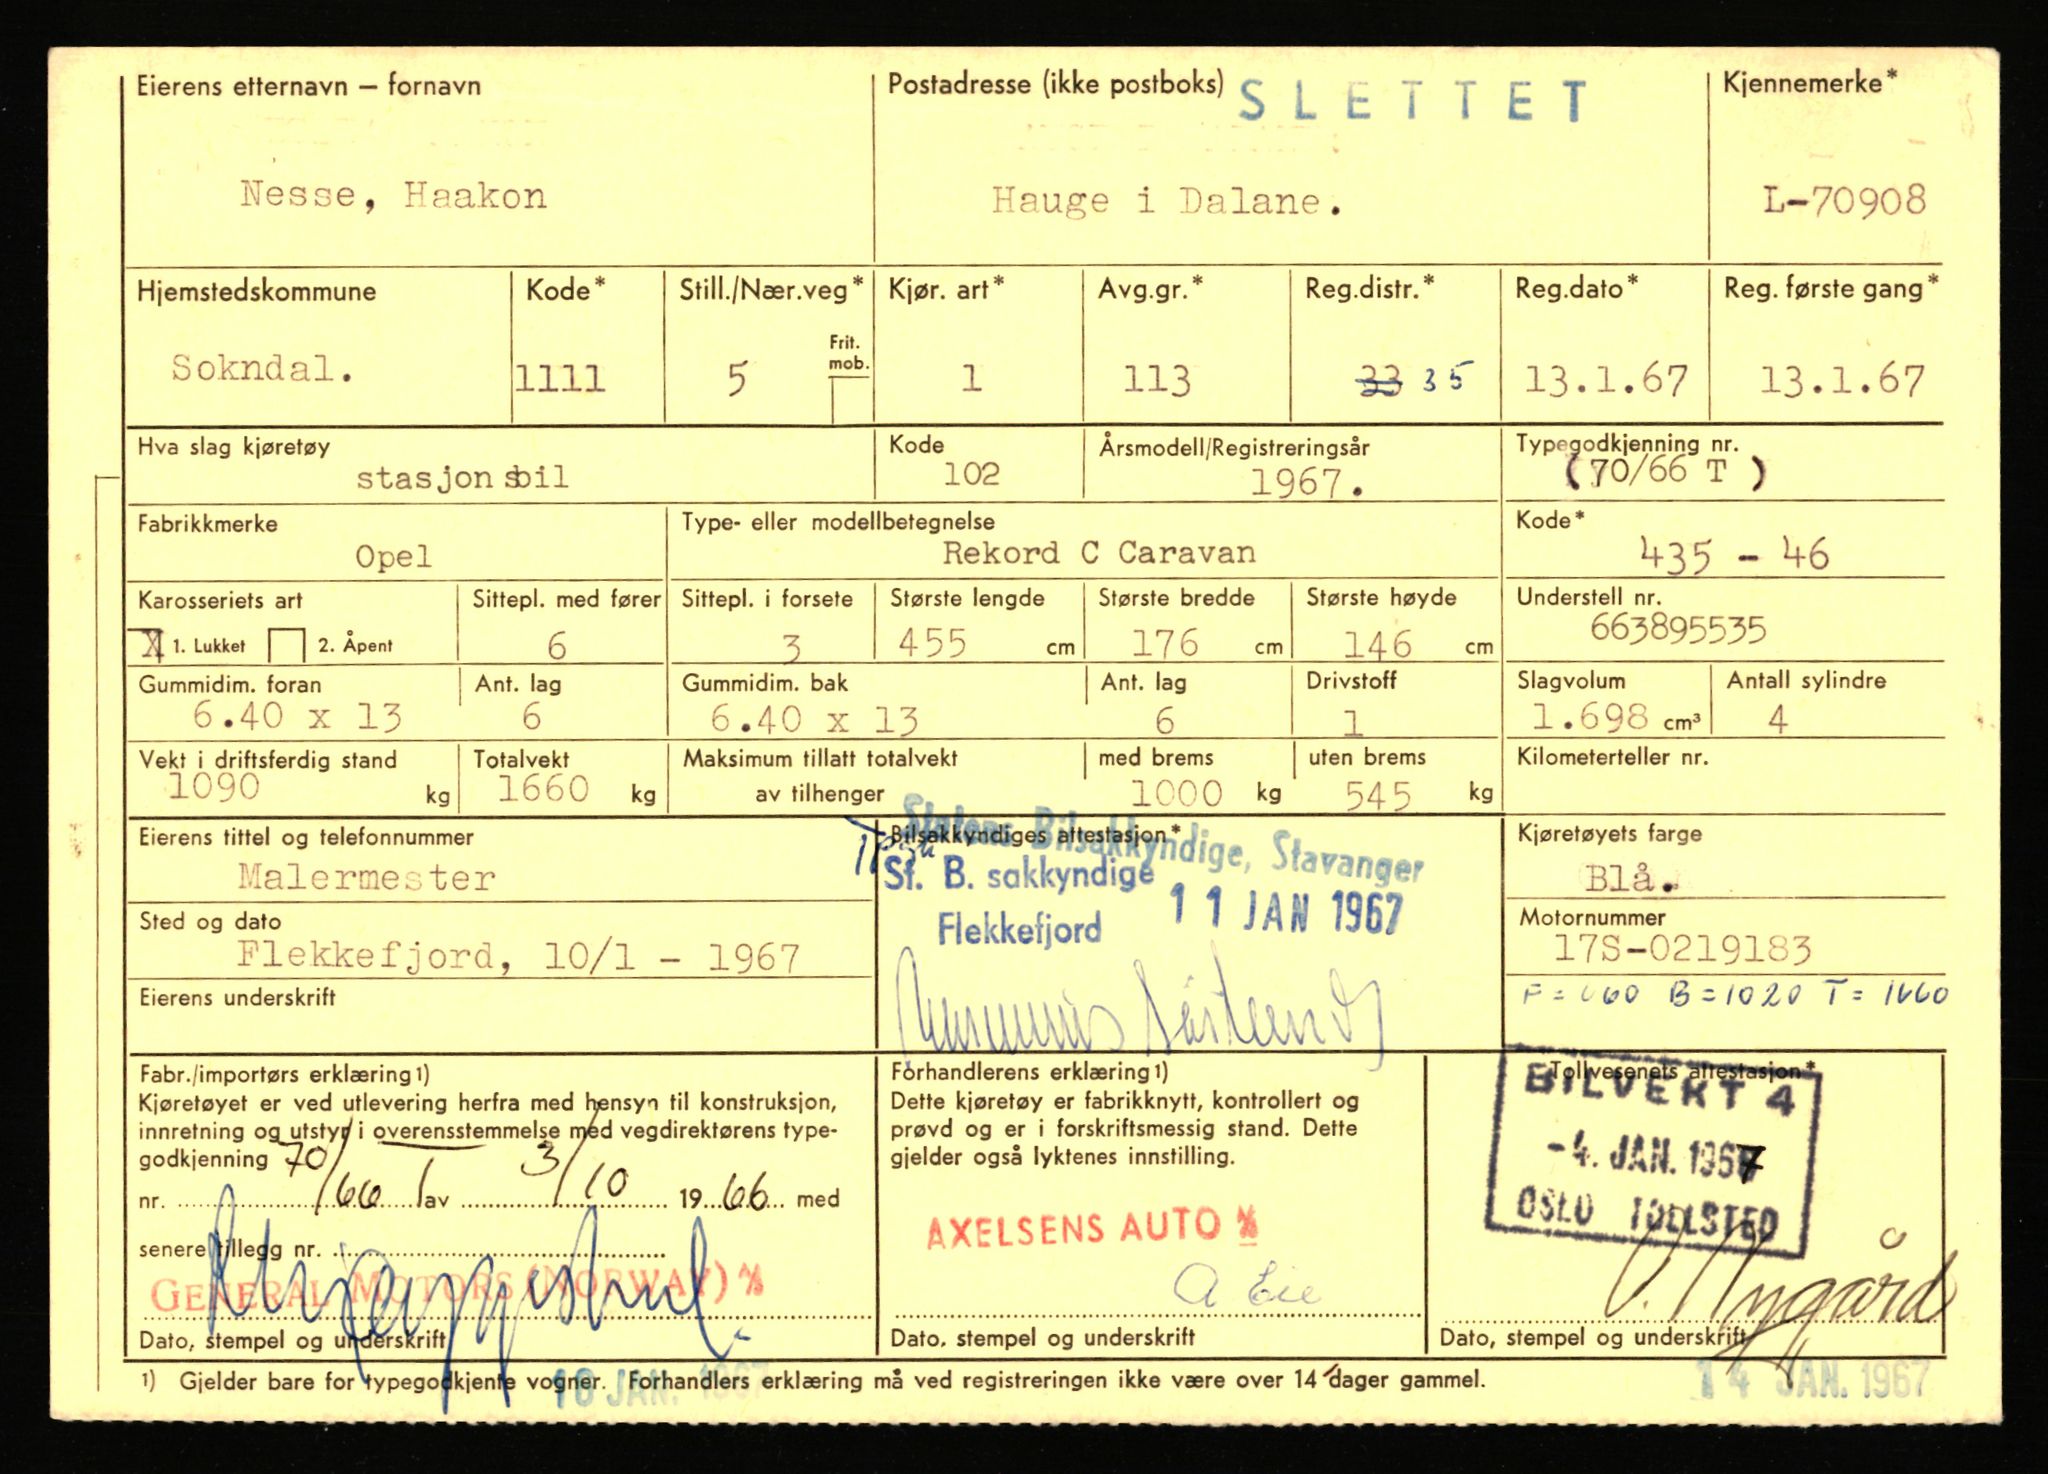 Eierens etternavn – fornavn
Postadresse (ikke postboks)
SLETTET
Kjennemerke*
Nesse, Haakon
Hauge i Dalane.
L-70908
Hjemstedskommune
Kode*
Still./Nær.veg*
Kjør. art*
Avg.gr.*
Reg.distr.*
Reg.dato*
Reg. første gang*
Frit. mob.
Sokndal.
1111
5
1
113
33 35
13.1.67
13.1.67
Hva slag kjøretøy
Kode
Årsmodell/Registreringsår
Typegodkjenning nr.
stasjonsbil
102
1967.
(70/66 T )
Fabrikkmerke
Type- eller modellbetegnelse
Kode*
Opel
Rekord C Caravan
435 - 46
Karosseriets art
Sittepl. med fører
Sittepl. i forsete
Største lengde
Største bredde
Største høyde
Understell nr.
X 1. Lukket 2. Åpent
6
3
455 cm
176 cm
146 cm
663895535
Gummidim. foran
Ant. lag
Gummidim. bak
Ant. lag
Drivstoff
Slagvolum
Antall sylindre
6.40 x 13
6
6.40 x 13
6
1
1.698 cm³
4
Vekt i driftsferdig stand
Totalvekt
Maksimum tillatt totalvekt
med brems
uten brems
Kilometerteller nr.
1090 kg
1660 kg
av tilhenger
1000 kg
545 kg
Eierens tittel og telefonnummer
Bilsakkyndiges attestasjon*
Statens Bilsakkyndige, Stavanger
Kjøretøyets farge
Malermester
St. B. sakkyndige
Blå.
11 JAN 1967
Sted og dato
Flekkefjord
Motornummer
Flekkefjord, 10/1 - 1967
17S-0219183
Eierens underskrift
F = 660 B = 1020 T = 1660
Fabr./importørs erklæring1)
Kjøretøyet er ved utlevering herfra med hensyn til konstruksjon,
innretning og utstyr i overensstemmelse med vegdirektørens type-
godkjenning
nr. 70/66 av 3/10 1966 med
senere tillegg nr.
GENERAL MOTORS (NORWAY) A/S
Dato, stempel og underskrift
Forhandlerens erklæring1)
Dette kjøretøy er fabrikknytt, kontrollert og
prøvd og er i forskriftsmessig stand. Dette
gjelder også lyktenes innstilling.
AXELSENS AUTO A/S
A Eie
Dato, stempel og underskrift
Tollvesenets attestasjon*
BILVEKT 4
-4. JAN. 1967
OSLO TOLLSTED
O. Nygård
Dato, stempel og underskrift
1) Gjelder bare for typegodkjente vogner. Forhandlers erklæring må ved registreringen ikke være over 14 dager gammel.
10 JAN. 1967
14 JAN. 1967